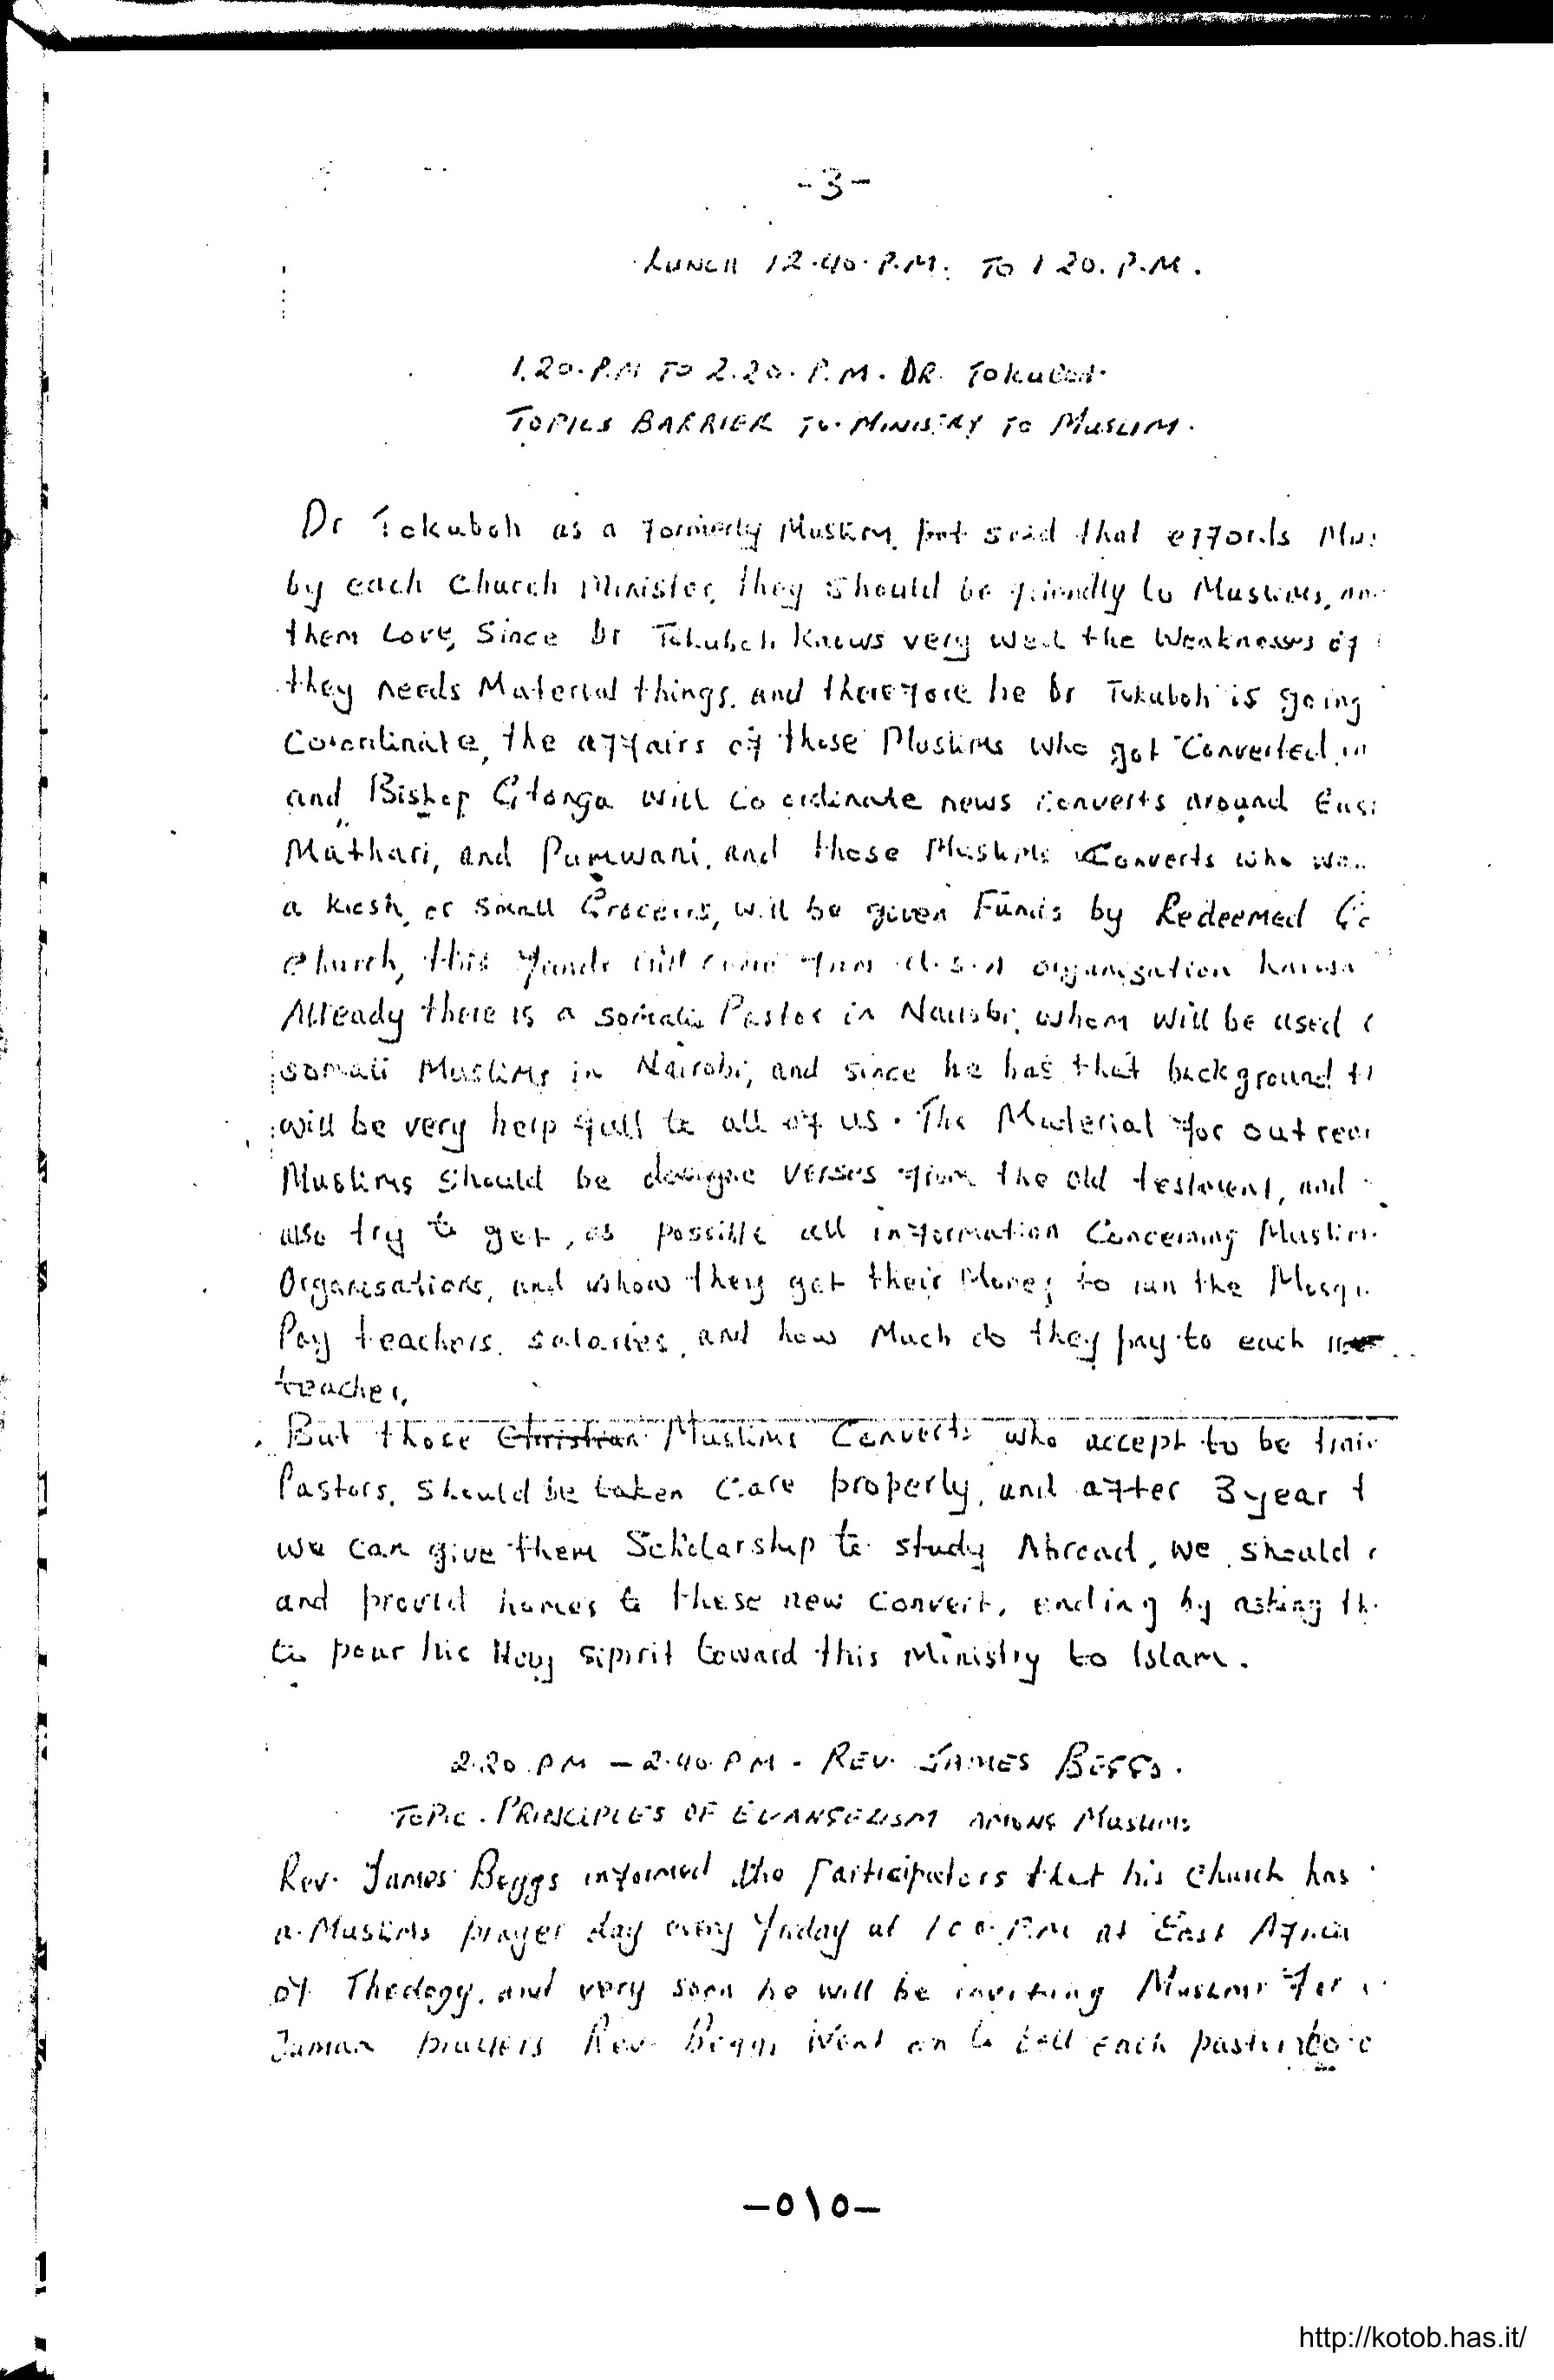 -3-
LUNCH 12.40. P.M. TO 1 20. P.M.
1.20. P.M TO 2.20. P.M. DR. Tokuboh
TOPICS BARRIER TO MINISTRY TO MUSLIM.
Dr Tokuboh as a formerly Muslim, but said that effords Mus
by each Church Minister, they should be friendly to Muslims, an
them Love, Since Dr Tokuboh Knows very well the Weaknesses of
they needs Material things. and therefore he Dr Tokuboh is going
Coordinate, the affairs of those Muslims who got Converted in
and Bishop Gitonga will Co ordinate news converts around Eas
Mathari, and Pumwani, and those Muslims Converts who wa
a kiosk, or small Groceris, will be given Funds by Redeemed Go
church, this funds will come from U.S.A organisation
Already there is a somalia Pastor in Nairobi, whom will be used
somali Muslims in Nairobi, and since he has that background th
will be very help full to all of us. The Material for out rea
Muslims should be verses from the old testament, and
also try to get, as possible all information Concerning Muslim
Organisations, and whow they get their Money to run the Mosqu
Pay teachers, salaries, and how Much do they pay to each
teacher,
But those Christian Muslims Converts who accept to be train
Pastors, should be taken care properly, and after 3 year t
we can give them Scholarship to study Abroad, we should
and provid homes to these new convert, ending by asking th
to pour his Holy Sipirit toward this Ministry to Islam.
2.20. PM - 2.40. PM - REV. JAMES BEGGS.
TOPIC. PRINCIPLES OF EVANGELISM AMONG MUSLIMS
Rev. James Beggs informed the Participators that his church has
a Muslims prayer day every friday at 1 00. P.M at East Africa
of Theology, and very soon he will be inviting Muslims for
Jumaa prayers Rev. Beggs went on to tell each pastor to
-٥١٥-
http://kotob.has.it/